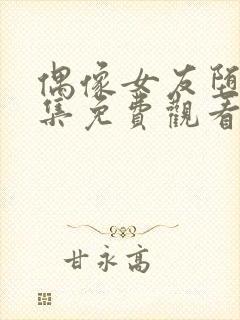 偶像女友堕
集免費觀看
甘永高